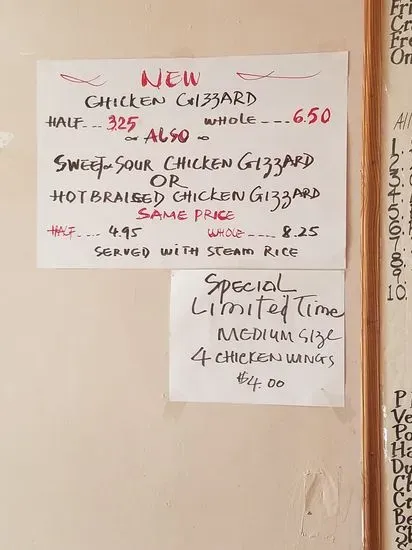 NEW
CHICKEN GIZZARD
HALF --- 3.25 WHOLE --- 6.50
ALSO
SWEET & SOUR CHICKEN GIZZARD
OR
HOT BRAISED CHICKEN GIZZARD
SAME PRICE
HALF --- 4.95 WHOLE --- 8.25
SERVED WITH STEAM RICE
SPECIAL
Limited Time
MEDIUM SIZE
4 CHICKEN WINGS
$4.00
Fri
Cr
Fre
On
All
1.
2.
3.
4.
5.
6.
7.
8.
9.
10.
P
Ve
Po
Ha
Du
Ch
Cr
Be